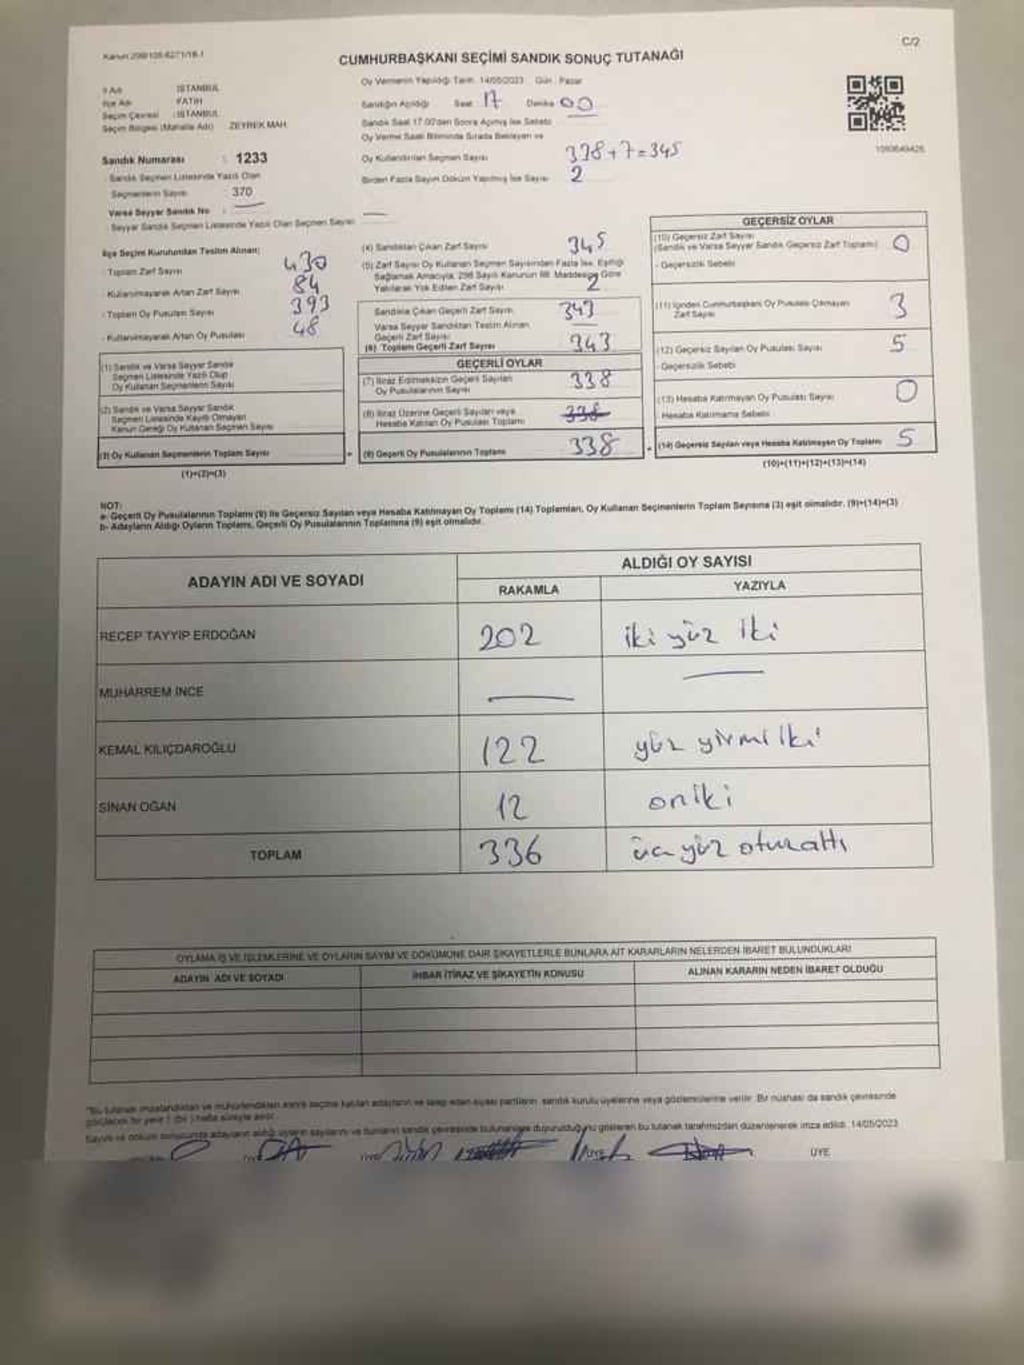 Kanun 298/105-6271/18-1
C/2
CUMHURBAŞKANI SEÇİMİ SANDIK SONUÇ TUTANAĞI
İl Adı : İSTANBUL
İlçe Adı : FATİH
Seçim Çevresi : İSTANBUL
Seçim Bölgesi (Mahalle Adı) ZEYREK MAH.
Sandık Numarası : 1233
Sandık Seçmen Listesinde Yazılı Olan
Seçmenlerin Sayısı : 370
Varsa Seyyar Sandık No :
Seyyar Sandık Seçmen Listesinde Yazılı Olan Seçmen Sayısı
Oy Vermenin Yapıldığı Tarih 14/05/2023 Gün : Pazar
Sandığın Açıldığı Saat 17 Dakika 00
Sandık Saat 17.00'den Sonra Açılmış İse Sebebi
Oy Verme Saati Bitiminde Sırada Bekleyen ve
Oy Kullandırılan Seçmen Sayısı 338+7=345
Birden Fazla Sayım Döküm Yapılmış İse Sayısı 2
1090649426
İlçe Seçim Kurulundan Teslim Alınan;
- Toplam Zarf Sayısı 430
- Kullanılmayarak Artan Zarf Sayısı 84
- Toplam Oy Pusulası Sayısı 393
- Kullanılmayarak Artan Oy Pusulası 48
(1) Sandık ve Varsa Seyyar Sandık
Seçmen Listesinde Yazılı Olup
Oy Kullanan Seçmenlerin Sayısı
(2) Sandık ve Varsa Seyyar Sandık
Seçmen Listesinde Kayıtlı Olmayan
Kanun Gereği Oy Kullanan Seçmen Sayısı
(3) Oy Kullanan Seçmenlerin Toplam Sayısı
(1)+(2)=(3)
(4) Sandıktan Çıkan Zarf Sayısı 345
(5) Zarf Sayısı Oy Kullanan Seçmen Sayısından Fazla İse, Eşitliği
Sağlamak Amacıyla, 298 Sayılı Kanunun 98. Maddesine Göre
Yakılarak Yok Edilen Zarf Sayısı 2
Sandıkta Çıkan Geçerli Zarf Sayısı 343
Varsa Seyyar Sandıktan Teslim Alınan
Geçerli Zarf Sayısı
(6) Toplam Geçerli Zarf Sayısı 343
GEÇERLİ OYLAR
(7) İtiraz Edilmeksizin Geçerli Sayılan
Oy Pusulalarının Sayısı 338
(8) İtiraz Üzerine Geçerli Sayılan veya
Hesaba Katılan Oy Pusulası Toplamı 338
(9) Geçerli Oy Pusulalarının Toplamı 338
GEÇERSİZ OYLAR
(10) Geçersiz Zarf Sayısı
(Sandık ve Varsa Seyyar Sandık Geçersiz Zarf Toplamı) 0
- Geçersizlik Sebebi
(11) İçinden Cumhurbaşkanı Oy Pusulası Çıkmayan
Zarf Sayısı 3
(12) Geçersiz Sayılan Oy Pusulası Sayısı 5
- Geçersizlik Sebebi
(13) Hesaba Katılmayan Oy Pusulası Sayısı 0
- Hesaba Katılmama Sebebi
(14) Geçersiz Sayılan veya Hesaba Katılmayan Oy Toplamı 5
(10)+(11)+(12)+(13)=(14)
NOT:
a- Geçerli Oy Pusulalarının Toplamı (9) ile Geçersiz Sayılan veya Hesaba Katılmayan Oy Toplamı (14) Toplamları, Oy Kullanan Seçmenlerin Toplam Sayısına (3) eşit olmalıdır. (9)+(14)=(3)
b- Adayların Aldığı Oyların Toplamı, Geçerli Oy Pusulalarının Toplamına (9) eşit olmalıdır.
ADAYIN ADI VE SOYADI
ALDIĞI OY SAYISI
RAKAMLA YAZIYLA
RECEP TAYYİP ERDOĞAN 202 iki yüz iki
MUHARREM İNCE
KEMAL KILIÇDAROĞLU 122 yüz yirmi iki
SİNAN OĞAN 12 oniki
TOPLAM 336 üç yüz otuzaltı
OYLAMA İŞ VE İŞLEMLERİNE VE OYLARIN SAYIM VE DÖKÜMÜNE DAİR ŞİKAYETLERLE BUNLARA AİT KARARLARIN NELERDEN İBARET BULUNDUKLARI
ADAYIN ADI VE SOYADI İHBAR İTİRAZ VE ŞİKAYETİN KONUSU ALINAN KARARIN NEDEN İBARET OLDUĞU
"Bu tutanak imzalandıktan ve mühürlendikten sonra seçime katılan adayların ve talep eden siyasi partilerin sandık kurulu üyelerine veya gözlemcilerine verilir. Bir nüshası da sandık çevresinde
görülecek bir yere 1 (bir) hafta süreyle asılır.
Sayım ve döküm sonucunda adayların aldığı oyların sayılarını ve bunların sandık çevresinde bulunanlara duyurulduğunu gösteren bu tutanak tarafımızdan düzenlenerek imza edildi. 14/05/2023
ÜYE